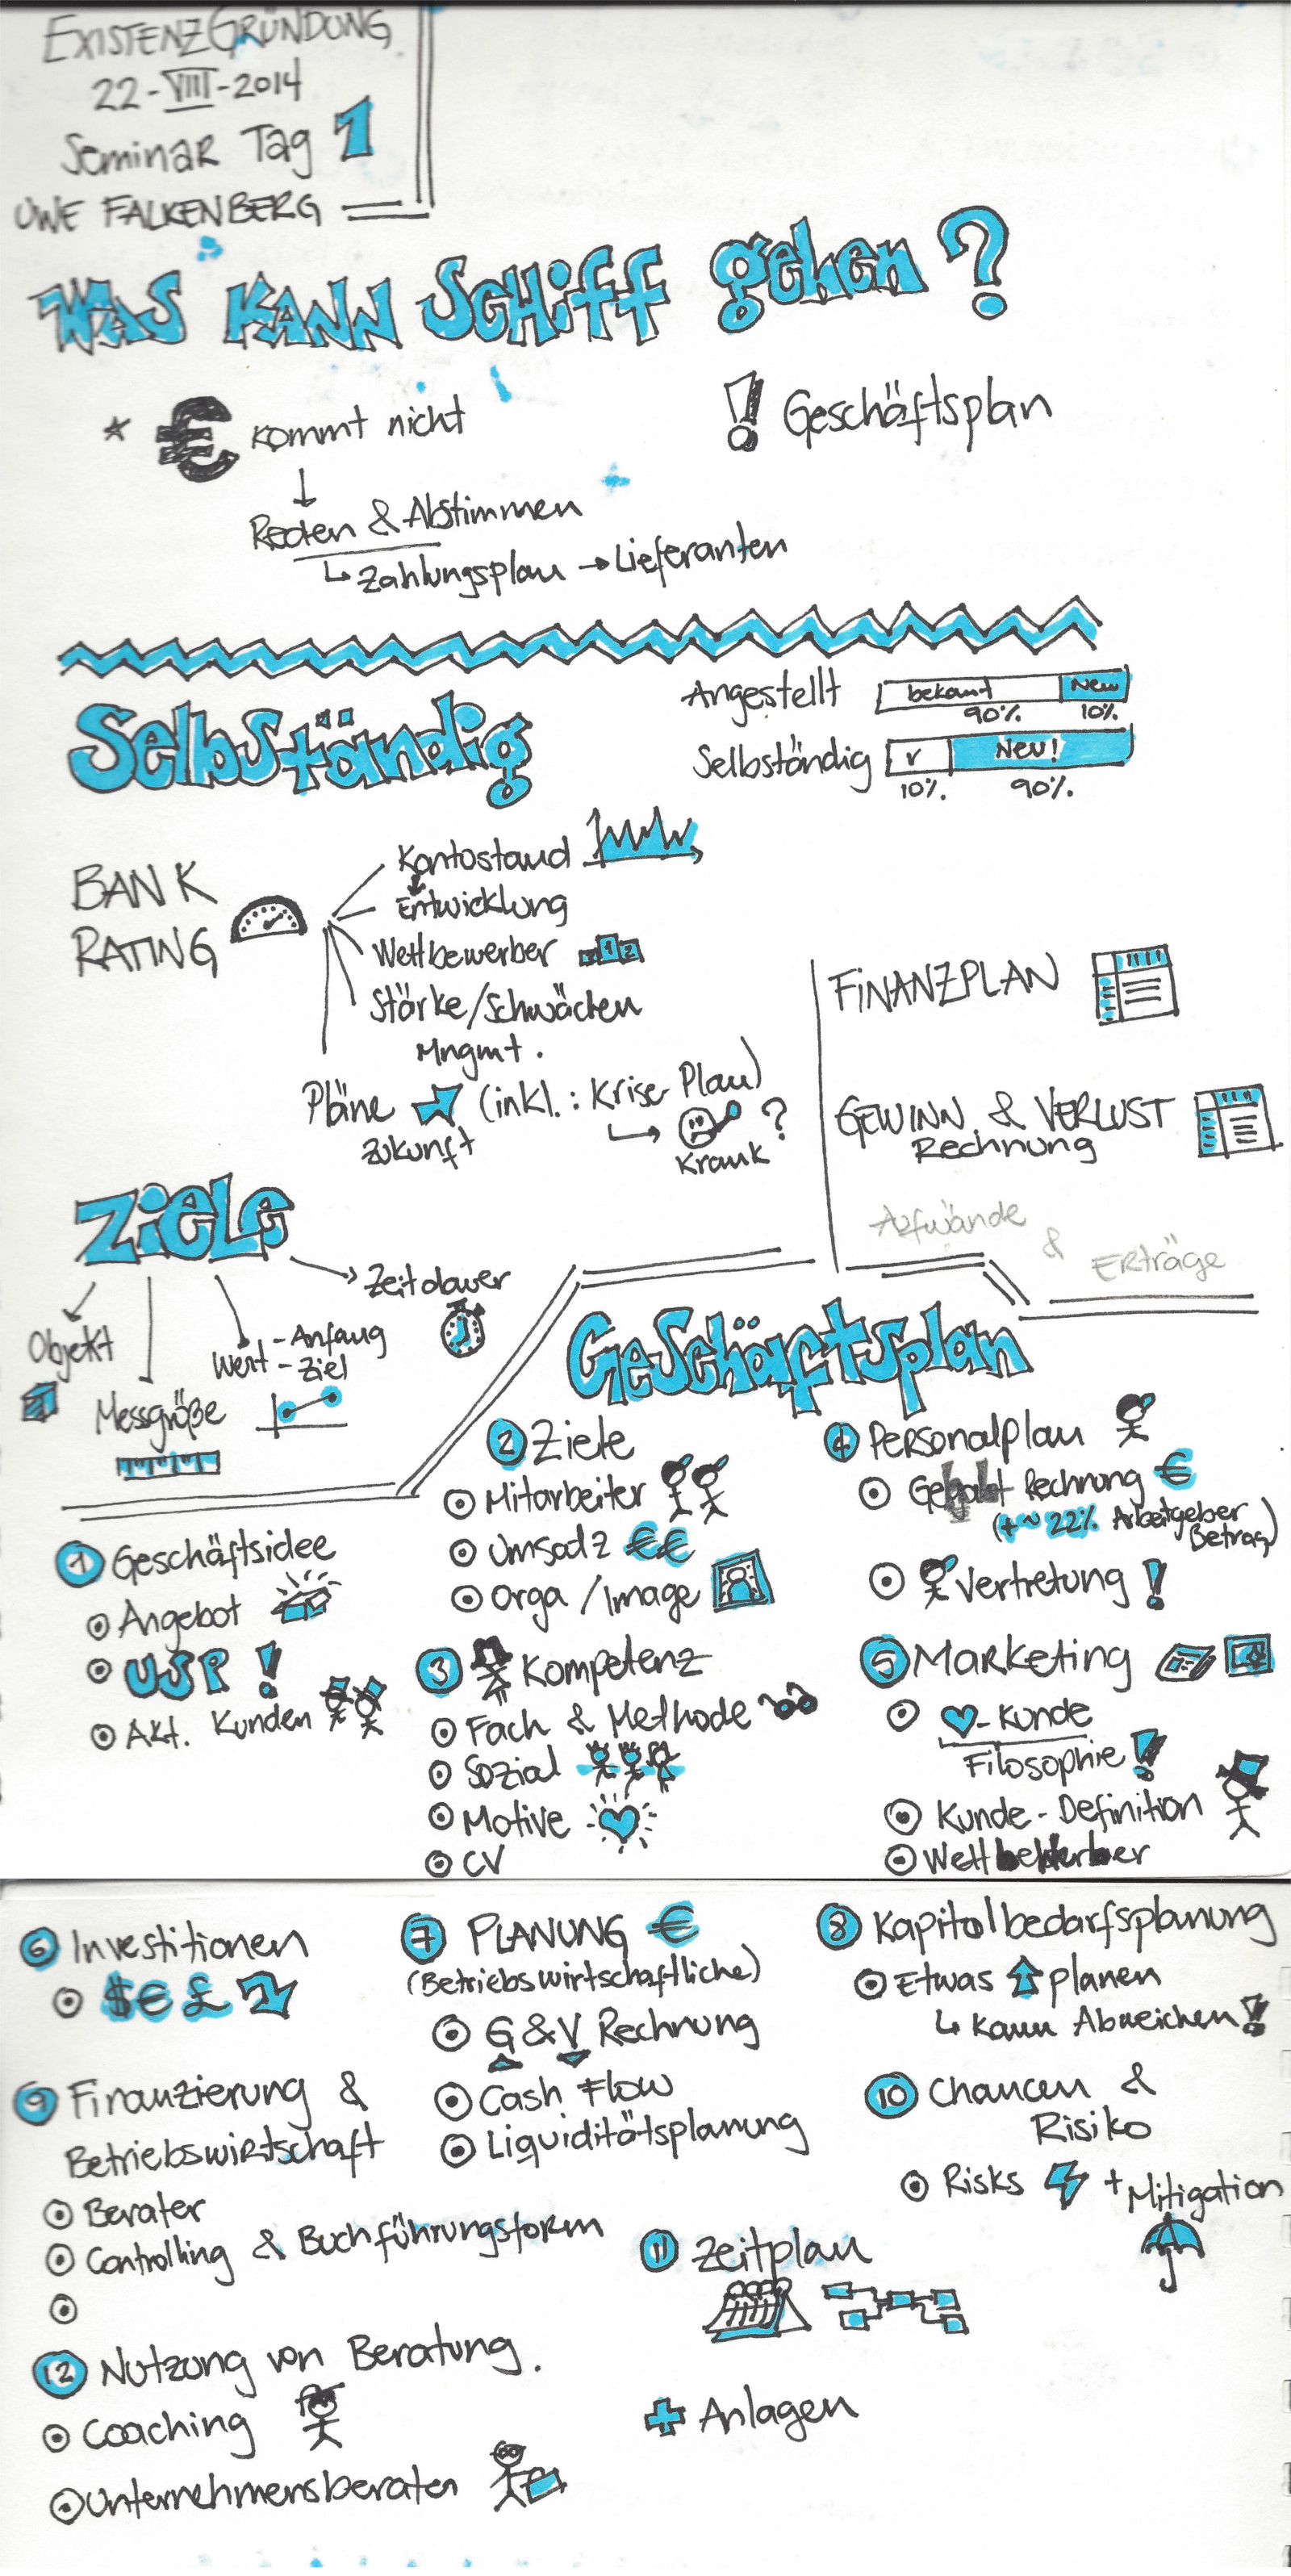 EXISTENZGRÜNDUNG
22-VIII-2014
Seminar Tag 1
UWE FALKENBERG
WAS KANN SCHIFF gehen?
* € kommt nicht
! Geschäftsplan
↓
Reden & Abstimmen
↳ Zahlungsplan → Lieferanten
Selbständig
Angestellt bekannt Neu
90% 10%
Selbständig Neu!
10% 90%
BANK
RATING
Kontostand
Entwicklung
Wettbewerber 1 2
Stärke/Schwächen
Mngmt.
Pläne (inkl.: Krise Plan)
Zukunft
→ ?
Krank
FINANZPLAN
GEWINN & VERLUST
Rechnung
Aufwände
&
Erträge
Ziele
Zeitdauer
Objekt
Wert - Anfang
- Ziel
Messgröße
Geschäftsplan
1 Geschäftsidee
Angebot
USP!
Akt. Kunden
2 Ziele
Mitarbeiter
Umsatz €€
Orga / Image
3 Kompetenz
Fach & Methode
Sozial
Motive
CV
4 Personalplan
Gehalt Rechnung €
(+~ 22% Arbeitgeber
Betrag)
Vertretung!
5 Marketing
- Kunde
Filosophie!
Kunde - Definition
Wettbewerber
6 Investitionen
$€£
7 PLANUNG €
(Betriebswirtschaftliche)
G&V Rechnung
Cash Flow
Liquiditätsplanung
8 Kapitalbedarfsplanung
Etwas ↑ planen
↳ Kann Abweichen!
9 Finanzierung &
Betriebswirtschaft
Berater
Controlling & Buchführungsform
10 Chancen &
Risiko
Risks + Mitigation
11 Zeitplan
12 Nutzung von Beratung.
Coaching
Unternehmensberater
+ Anlagen